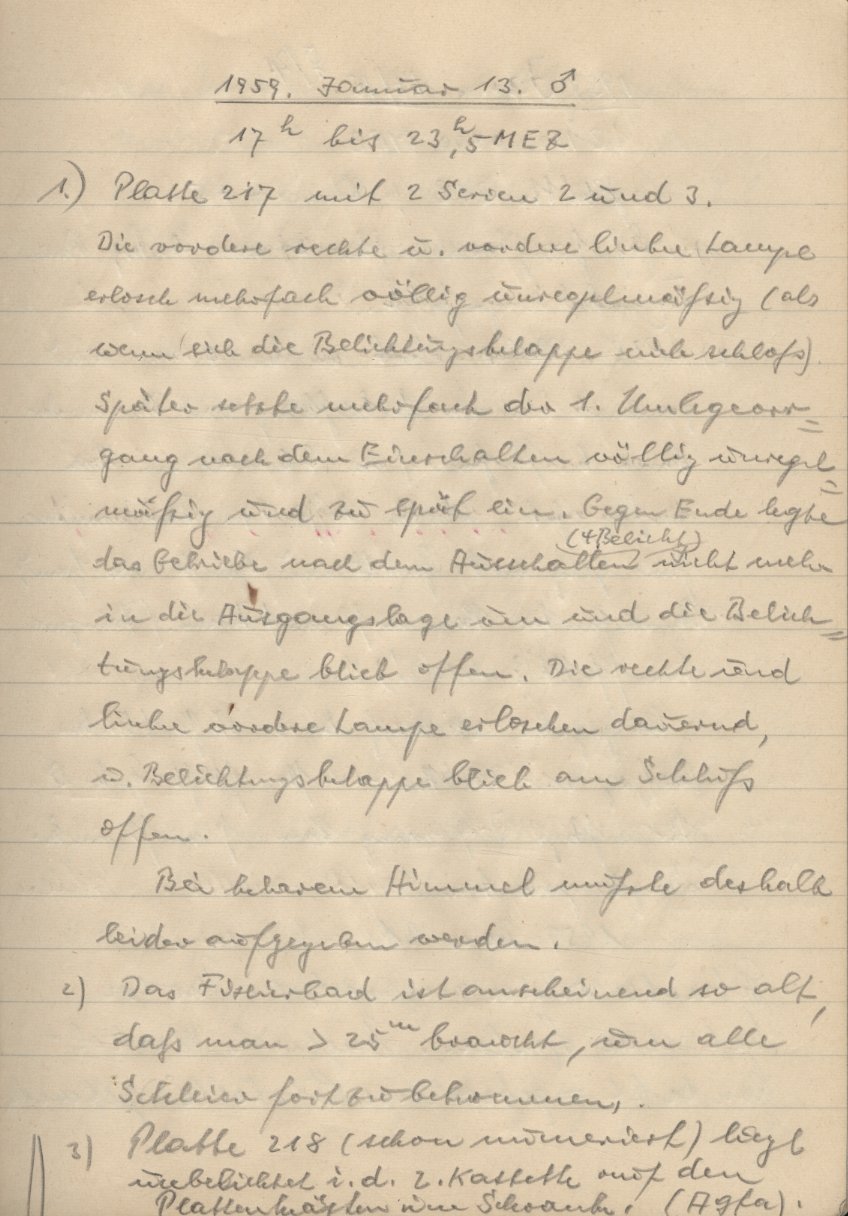 1959. Januar 13. ♂
17ʰ bis 23ʰ,5 MEZ
1.) Platte 217 mit 2 Serien 2 und 3.
Die vordere rechte u. vordere linke Lampe
erlosch mehrfach völlig unregelmäßig (als
wenn sich die Belichtungsklappe nicht schloß).
Später setzte mehrfach der 1. Umlegevor=
gang nach dem Einschalten völlig unregel=
mäßig und zu spät ein. Gegen Ende legte
(4 Belicht.)
das Getriebe nach dem Ausschalten nicht mehr
in die Ausgangslage um und die Belich=
tungsklappe blieb offen. Die rechte und
linke vordere Lampe erloschen dauernd,
u. Belichtungsklappe blieb am Schluß
offen.
Bei klarem Himmel mußte deshalb
leider aufgegeben werden.
2) Das Fixierbad ist anscheinend so alt,
daß man > 25ᵐ braucht, um alle
Schleier fortzubekommen.
3) Platte 218 (schon numeriert) liegt
unbelichtet i. d. 2. Kassette auf den
Plattenkästen im Schrank. (Agfa).